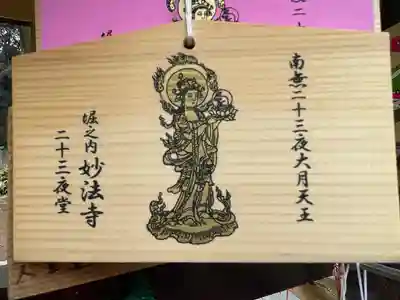 南無二十三夜大月天王
堀之内 妙法寺
二十三夜堂